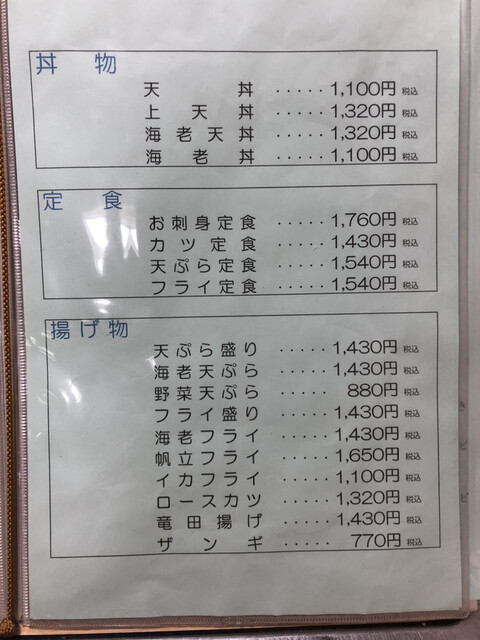 丼物
天丼 ····· 1,100円 税込
上天丼 ····· 1,320円 税込
海老天丼 ····· 1,320円 税込
海老丼 ····· 1,100円 税込
定食
お刺身定食 ····· 1,760円 税込
カツ定食 ····· 1,430円 税込
天ぷら定食 ····· 1,540円 税込
フライ定食 ····· 1,540円 税込
揚げ物
天ぷら盛り ····· 1,430円 税込
海老天ぷら ····· 1,430円 税込
野菜天ぷら ····· 880円 税込
フライ盛り ····· 1,430円 税込
海老フライ ····· 1,430円 税込
帆立フライ ····· 1,650円 税込
イカフライ ····· 1,100円 税込
ロースカツ ····· 1,320円 税込
竜田揚げ ····· 1,430円 税込
ザンギ ····· 770円 税込